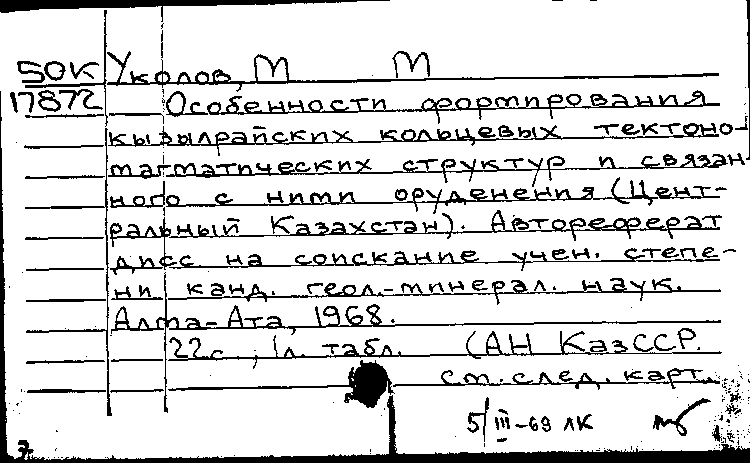 50К Уколов, М М
17872 Особенности формирования
кызылрайских кольцевых тектоно-
магматических структур и связан-
ного с ними оруденения (Цент-
ральный Казахстан). Автореферат
дисс на соискание учен. степе-
ни канд. геол.-минерал. наук.
Алма-Ата, 1968.
22с., 1л. табл. (АН КазССР.
см. след. карт.
5/III-69 ЛК
7.